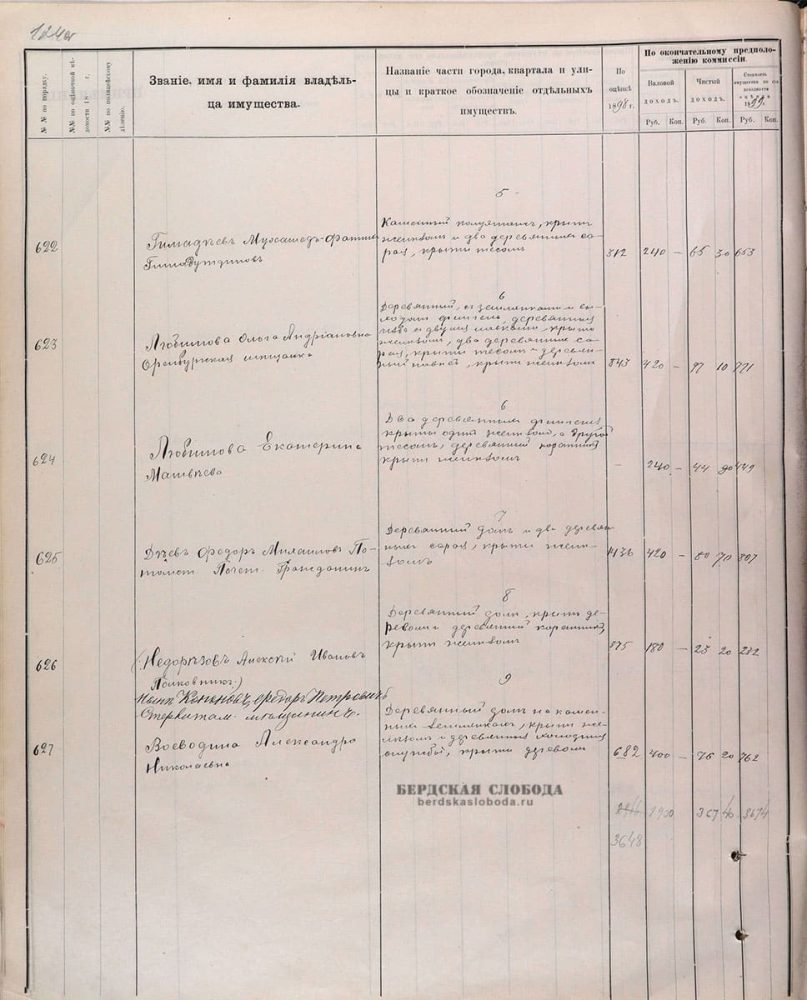 124об
№№ по порядку.
№№ по оцѣночной вѣ-
домости 18 г.
№№ по полицейскому
дѣленію.
Званіе, имя и фамилія владѣль-
ца имущества.
Названіе части города, квартала и ули-
цы и краткое обозначеніе отдѣльныхъ
имуществъ.
По
оцѣнкѣ
1898 г.
По окончательному предполо-
женію коммиссіи.
Валовой
доходъ.
Чистый
доходъ.
Стоимость
имущества
1899.
Руб. Коп. Руб. Коп. Руб. Коп.
5
622
Гимадѣевъ
Каменный полуэтажъ, крытъ
желѣзомъ и два деревянныхъ са-
рая, крыты тесомъ
812 240 – 65 30 653
6
623
Любимова Ольга Андріановна
Оренбургская мѣщанка
Деревянный, съ землянками и
флигель, деревянный
крытъ
желѣзомъ, два деревянные са-
рая, крыты тесомъ и деревян-
ный навѣсъ, крытъ желѣзомъ
843 420 – 77 10 771
6
624
Любимова Екатерина
Матвѣева
Два деревянныхъ флигеля,
крыты одинъ желѣзомъ, а другой
тесомъ, деревянный каретникъ
крытъ желѣзомъ
– 240 – 44 90 449
7
625
Дѣевъ Федоръ Михаиловъ По-
томст. Почет. Гражданинъ
Деревянный домъ и два деревян-
ныхъ сарая, крыты желѣ-
зомъ
1136 420 – 80 70 807
8
626
(Недорѣзовъ Алексѣй Ивановъ
Полковникъ)
Нынѣ Кононовъ, Федоръ Петровичъ
Стерлитам. мѣщанинъ.
Деревянный домъ, крытъ де-
ревомъ и деревянный каретникъ,
крытъ желѣзомъ
875 180 – 23 20 232
9
627
Воеводина Александра
Николаевна
Деревянный домъ на камен-
ныхъ землянкахъ, крытъ же-
лѣзомъ и деревянныя холодныя
службы, крыты деревомъ
682 400 – 76 20 762
БЕРДСКАЯ СЛОБОДА
berdskasloboda.ru
367 40 3674
3648